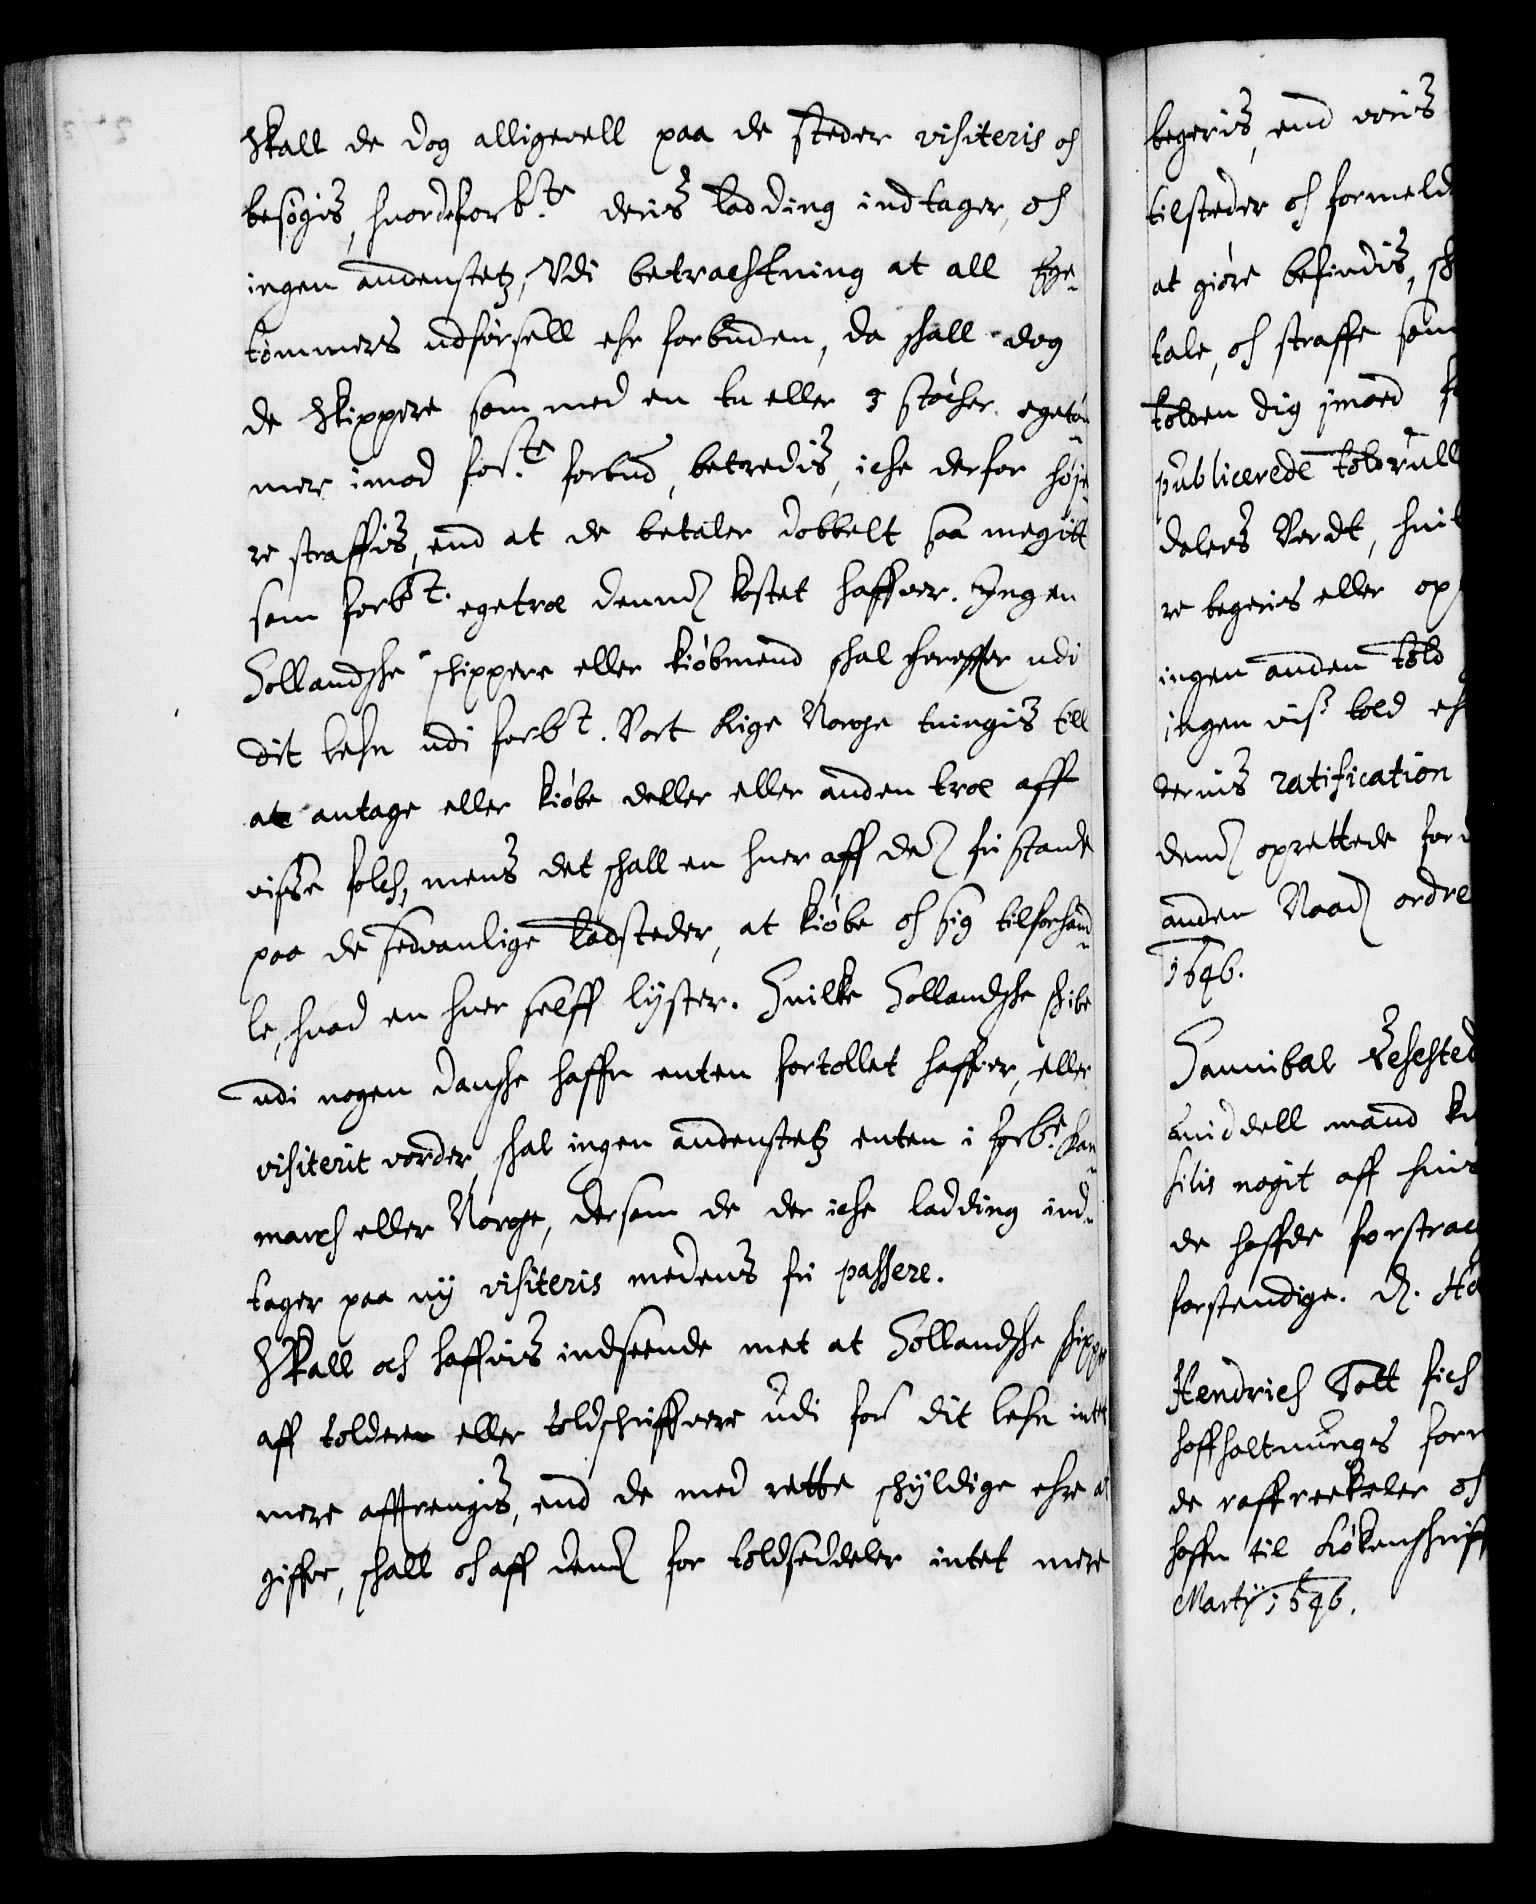 Skall de dog alligevell paa de steder visiteris och
besøgis, hvor de forbte deris ladding indtager, och
ingen andenstetz, Udi betrachtning at all Ege-
tømmers udførsell ehr forbuden, da skall dog
de Skippere som med en tu eller 3 støcher egetøm-
mer imod forte forbud, betredis, iche derfor høje-
re straffis, end at de betaler dobbelt saa megitt
som forbt. egetræ dennem kostet haffver. Ingen
Hollandske skippere eller kiøbmend skal hereffter udi
dit Lehn udi forbt. Vort Rige Norge tuingis till
at antage eller kiøbe deller eller anden træ aff
visse folch, mens det skall en huer aff dem frit stande
paa de sedvanlige Ladsteder, at kiøbe och sig tilforhand-
le, hvad en huer selff lyster. Huilke Hollandske skibe
udi nogen danske haffn enten fortollet haffver, eller
visiterit vorder, skal ingen andenstetz enten i forbe: Dan-
march eller Norge, dersom de der iche ladding ind-
tager paa ny visiteris medens fri passere.
Skall och haffvis indseende met at Hollandske skipper
aff tolderen eller toldschriffvere udi for dit lehn intet
mere afftrengis, end de med rette skyldige ehre at
giffve, skall och aff dem for toldseddeler intet mere
begeris, end voris
tilsteder och formeld
at giøre befindis, sk
tale, och straffe som
tolden dig imod
publicerede toldrull
dalers Verdt, huil
re begeris eller op
ingen anden told
ingen vis told eh
deris ratification
dem oprettede for
anden Naad ordre
1646.
Hannibal Sehested
middell mand
hilis nogit aff huis
de haffde forstrac
forstendige. D.
Hendrich Tott fich
hoffholtnungs forr
de raffreekeler och
hoffn til Køkenschriff
Martij 1646.